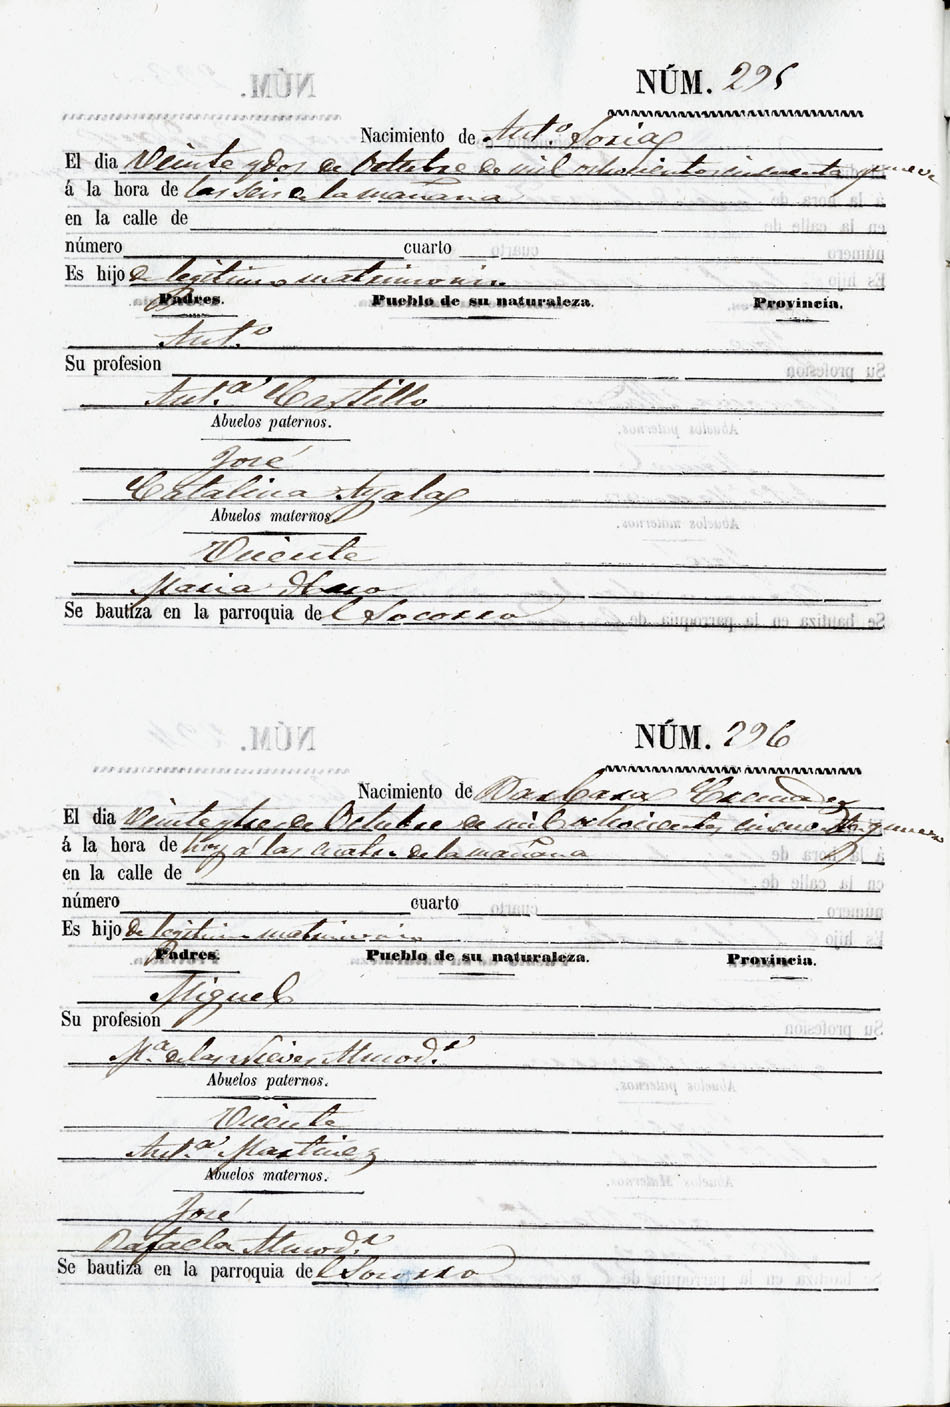 NÚM. 295
Nacimiento de Antº. Soria
El dia Veinte y dos de Octubre de mil ochocientos cincuenta y nueve
á la hora de las seis de la mañana
en la calle de
número cuarto
Es hijo de legitimo matrimonio
Padres. Pueblo de su naturaleza. Provincia.
Antº
Su profesion
Ant.ª Castillo
Abuelos paternos.
José
Catalina Ayala
Abuelos maternos.
Vicente
Maria
Se bautiza en la parroquia del Socorro
NÚM. 296
Nacimiento de Barbara
El dia Veinte y tres de Octubre de mil ochocientos cincuenta y nueve
á la hora de hoy á las cuatro de la mañana
en la calle de
número cuarto
Es hijo de legitimo matrimonio
Padres. Pueblo de su naturaleza. Provincia.
Miguel
Su profesion
M.ª de las Nieves Almod.r
Abuelos paternos.
Vicente
Ant.ª Martinez
Abuelos maternos.
José
Rafaela Almod.r
Se bautiza en la parroquia del Socorro